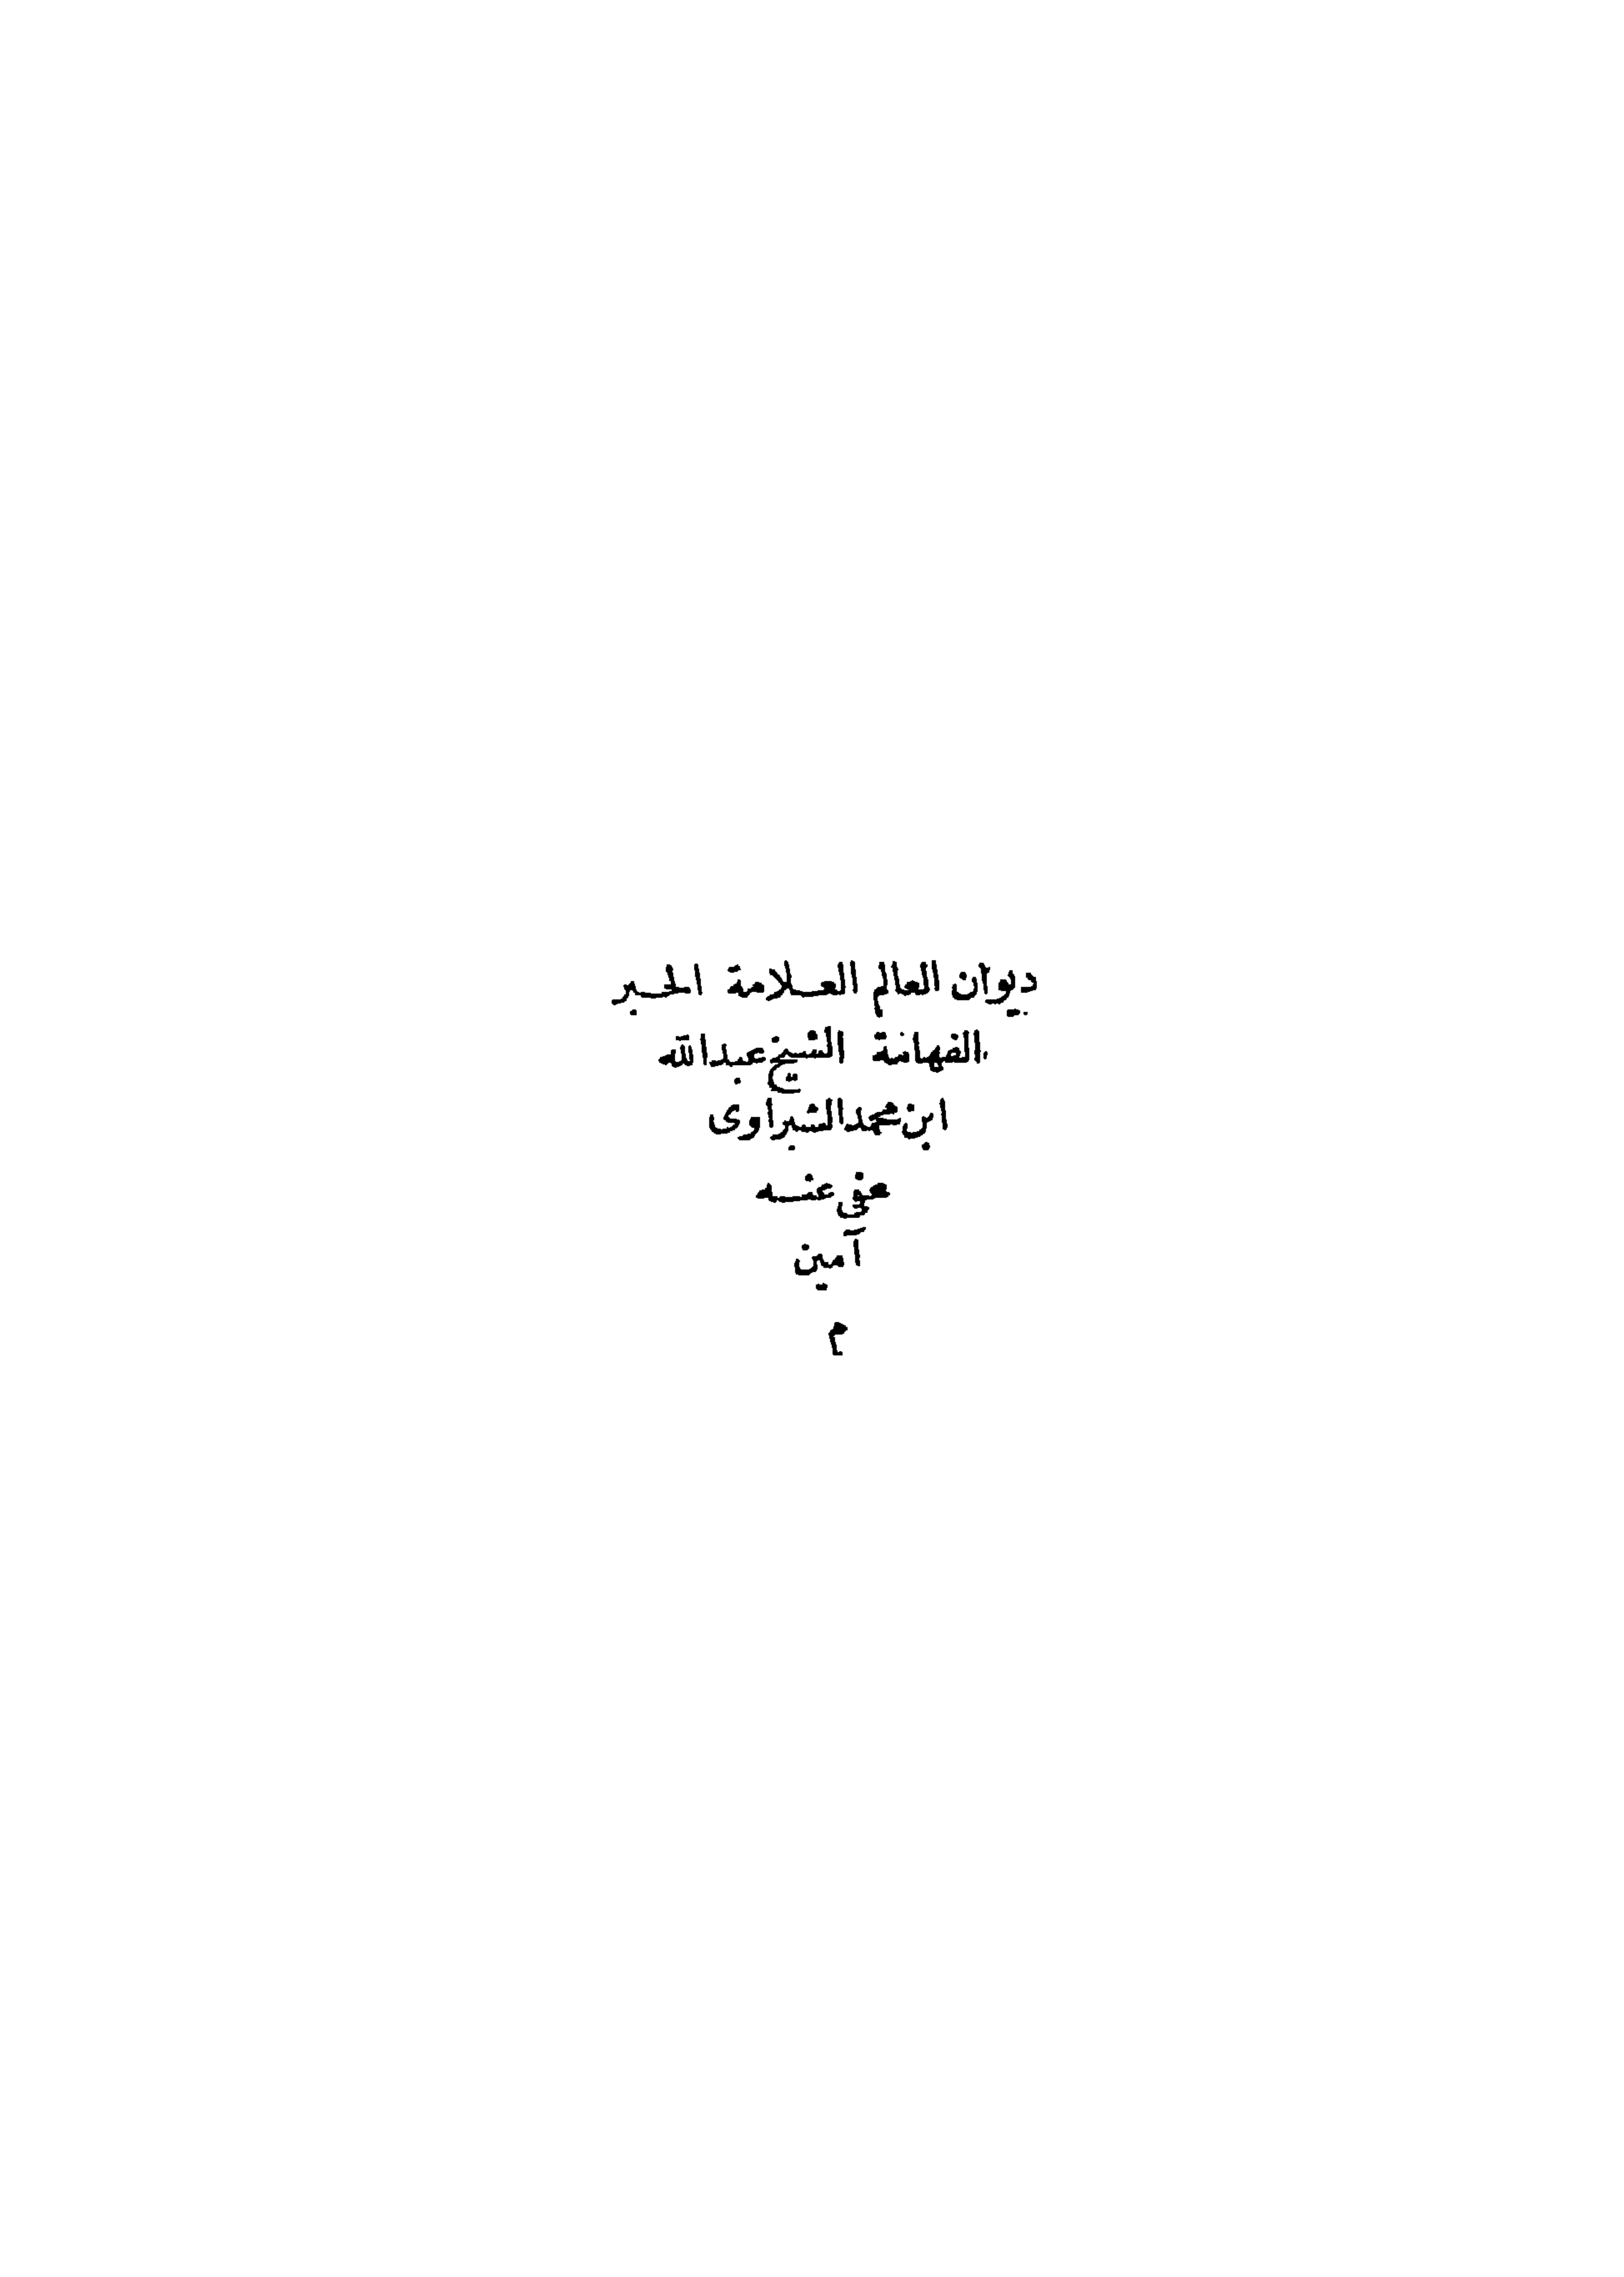 ديوان العالم العلامة الحبر
الفهامة الشيخ عبدالله
ابن محمد الشبراوى
عفى عنه
آمين
م